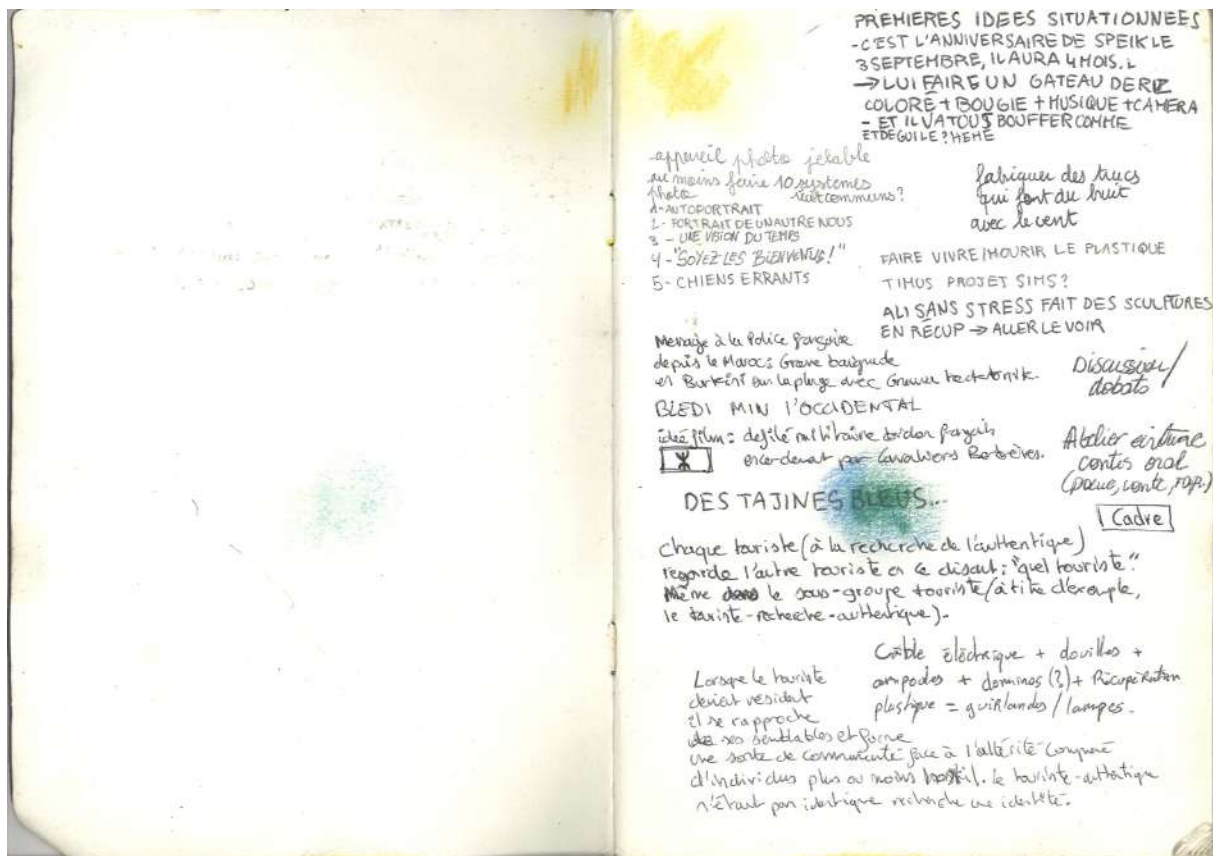 PREMIERES IDEES SITUATIONNEES
- C'EST L'ANNIVERSAIRE DE SPEIK LE
3 SEPTEMBRE, IL AURA 4 MOIS.
→ LUI FAIRE UN GATEAU DE RIZ
COLORÉ + BOUGIE + MUSIQUE + CAMERA
- ET IL VA TOUS BOUFFER COMME
ET DEGUILE ? HEHE
appareil photo jetable
au moins faire 10 systemes
photo communs ?
1- AUTOPORTRAIT
2- PORTRAIT DE UN AUTRE NOUS
3 - UNE VISION DU TEMPS
4 - "SOYEZ LES BIENVENUS!"
5- CHIENS ERRANTS
fabriquer des trucs
qui font du buit
avec le vent
FAIRE VIVRE/MOURIR LE PLASTIQUE
TIMUS PROJET SIMS ?
ALI SANS STRESS FAIT DES SCULPTURES
EN RÉCUP → ALLER LE VOIR
Message à la Police française
depuis le Maroc : Grave baignade
en Burkini sur la plage avec
BLEDI MIN l'OCCIDENTAL
idée film = defilé militaire français
par Cavaliers Berbères.
ⵣ
Discussion/
debats
Atelier ecriture
contes oral
(poeme, conte, rap.)
DES TAJINES BLEUS...
Cadre
Chaque touriste (à la recherche de l'authentique)
regarde l'autre touriste en ce disant : "quel touriste".
Même dans le sous-groupe touriste (à titre d'exemple,
le touriste-recherche-authentique).
Câble éléctrique + douilles +
ampoules + dominos (?) + Récupération
plastique = guirlandes / lampes.
Lorsque le touriste
devient résident
il se rapproche
de ses semblables et forme
une sorte de communauté face à l'altérité composé
d'individus plus ou moins hostil. le touriste-authentique
n'étant pas identique recherche une identité.